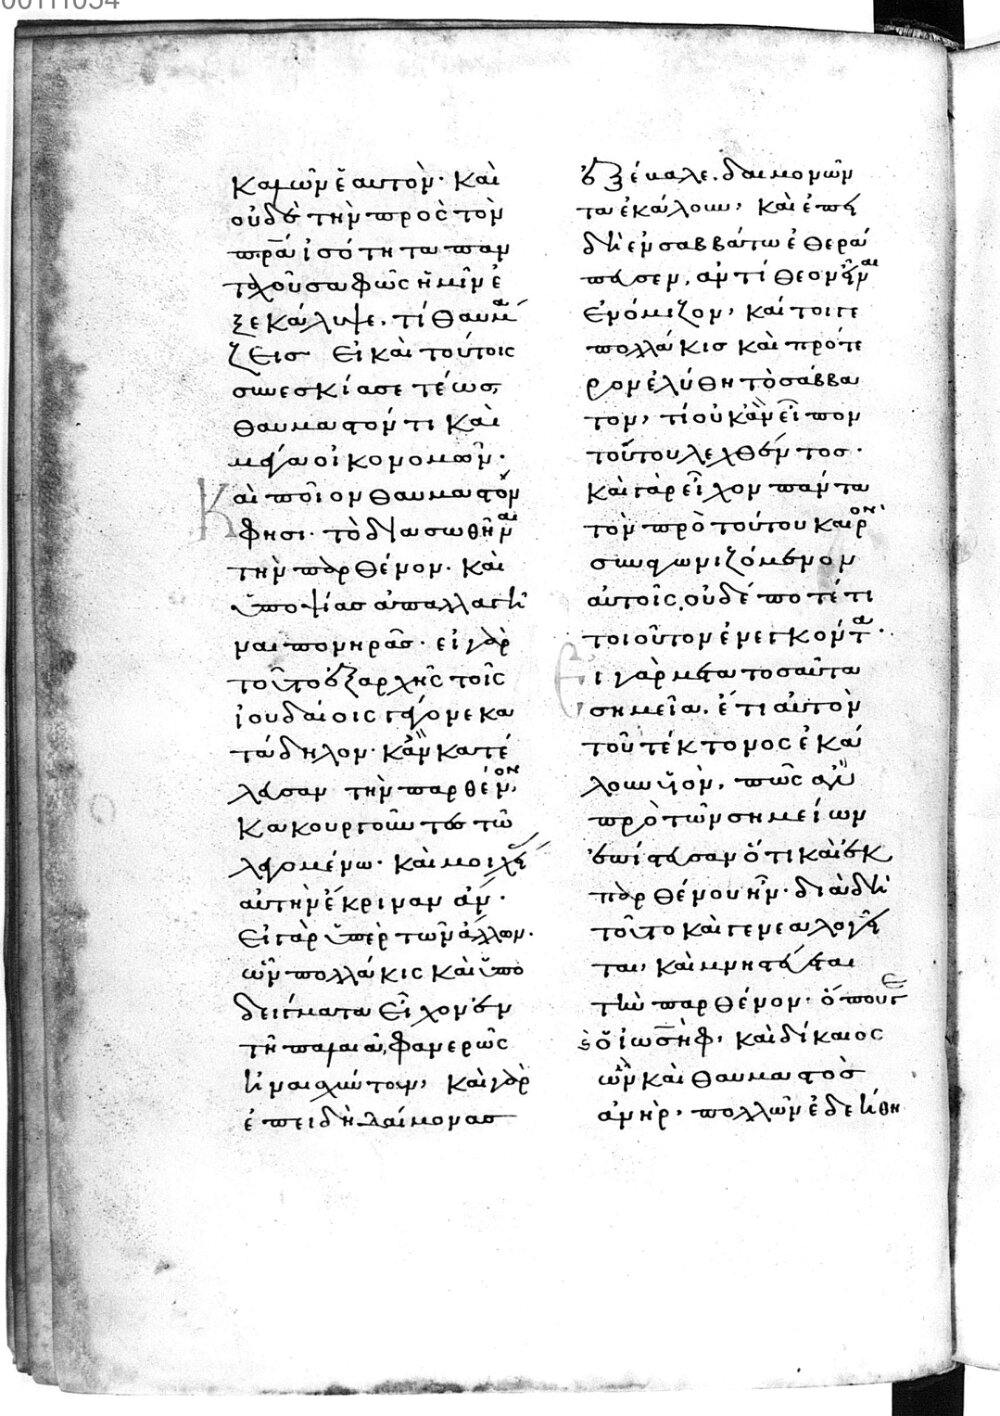 00111054
καμὼν ἑαυτὸν· καὶ
οὐδὲ τὴν πρὸς τὸν
πρα ἰσότητα παν
ταχοῦ σαφῶς ἡμῖν ἐ
ξεκάλυψε. τί θαυμά
ζεις εἰ καὶ τούτοις
συνεσκίασε τέως,
θαυμαστόν τι καὶ
μέγα οἰκονομῶν·
Καὶ ποῖον θαυμαστόν
φησι· τὸ διασωθῆναι
τὴν παρθένον· καὶ
ὑποψίας ἀπαλλαγῆ
ναι πονηρᾶς· εἰ γὰρ
τοῦτο ἐξ ἀρχῆς τοῖς
ἰουδαίοις γέγονε κα
τάδηλον· κἂν κατέ
λευσαν τὴν παρθένον,
κακουργοῦντες τῶ
λεγομένω· καὶ μοιχεί
αὐτὴν ἔκριναν ἄν·
Εἰ γὰρ ὑπὲρ τῶν ἄλλων·
ὧν πολλάκις καὶ ὑπο
δείγματα εἶχον ἐν
τῆ παλαιᾶ, φανερῶς
ἠναισχύντουν, καὶ γὰρ
ἐπειδὴ δαίμονας
ἐξέβαλε. δαιμονῶν
τα ἐκάλουν, καὶ ἐπει
δὴ ἐν σαββάτω ἐθερά
πευσεν, ἀντίθεον εἶναι
ἐνόμιζον, καίτοιγε
πολλάκις καὶ πρότε
ρον ἐλύθη τὸ σάββα
τον, τί οὐκ ἂν εἶπον
τούτου λεχθέντος·
καὶ γὰρ εἶχον πάντα
τὸν πρὸ τούτου καιρὸν
συναγωνιζόμενον
αὐτοῖς, οὐδέποτέ τι
τοιοῦτον ἐνεγκόντα·
Εἰ γὰρ μετὰ τοσαῦτα
σημεῖα. ἔτι αὐτὸν
τοῦ τέκτονος ἐκά
λουν υἱὸν, πῶς ἂν
πρὸ τῶν σημείων
ἐπίστευσαν ὅτι καὶ ἐκ
παρθένου ἦν· διὰ δὴ
τοῦτο καὶ γενεαλογεῖ
ται, καὶ μνηστεύεται
τὴν παρθένον· ὅπου γε
ὁ ἰωσὴφ, καὶ δίκαιος
ὢν καὶ θαυμαστὸς
ἀνὴρ, πολλῶν ἐδεήθη